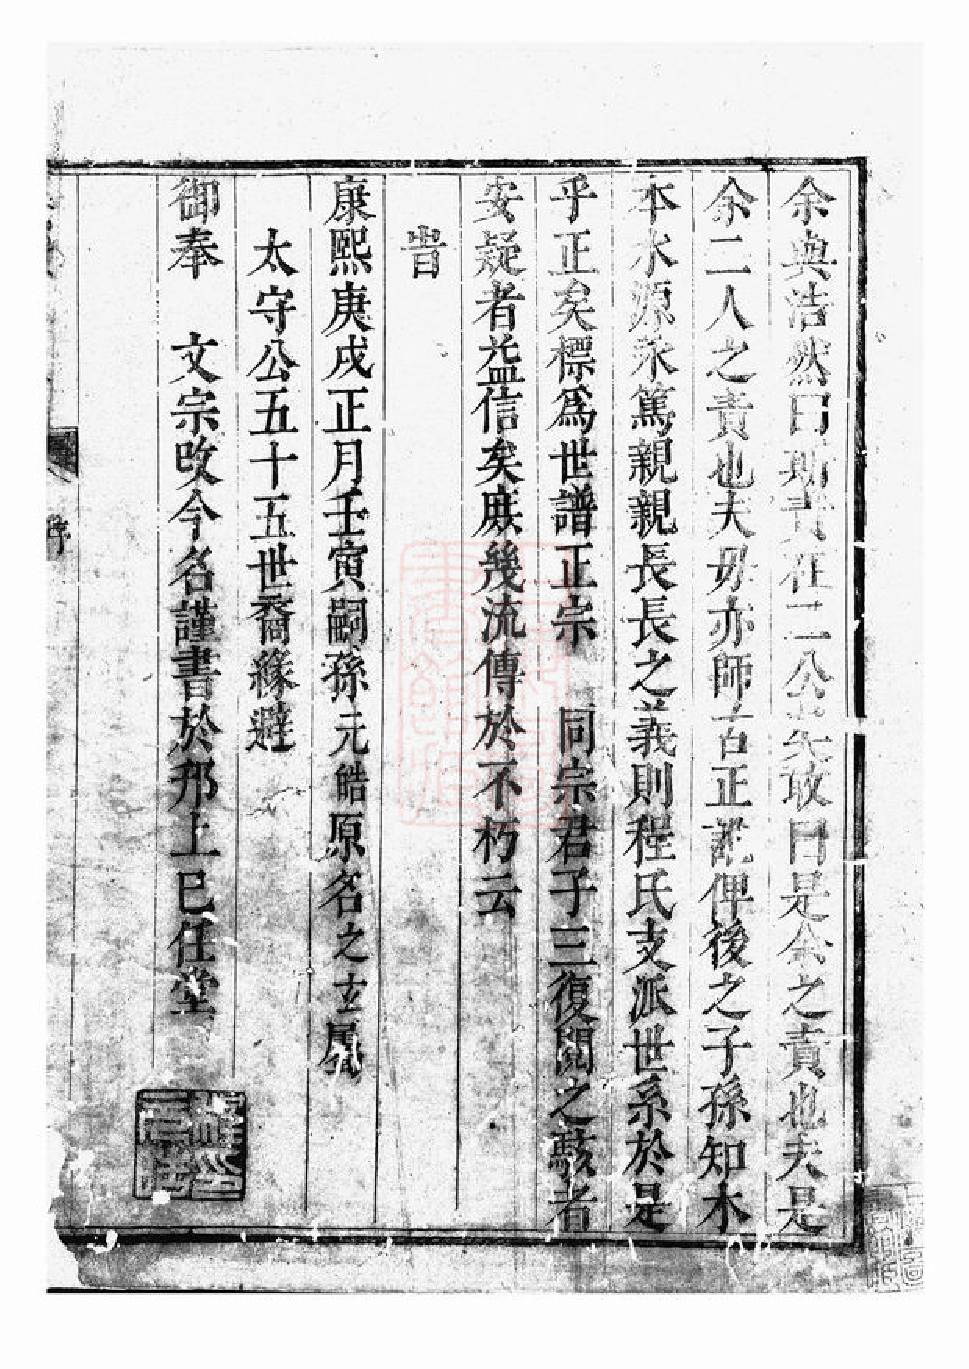 余與浩然曰斯責在二公矣敢曰是余之責也夫是
余二人之責也夫毋亦師古正訛俾後之子孫知木
本水源永篤親親長長之義則程氏支派世系於是
乎正矣標爲世譜正宗　同宗君子三復閱之駭者
安疑者益信矣庶幾流傳於不朽云
旹
康熙庚戌正月壬寅嗣孫元皓原名之玄屬
太守公五十五世裔緣避
御奉　文宗改今名謹書於邗上巳任堂
序